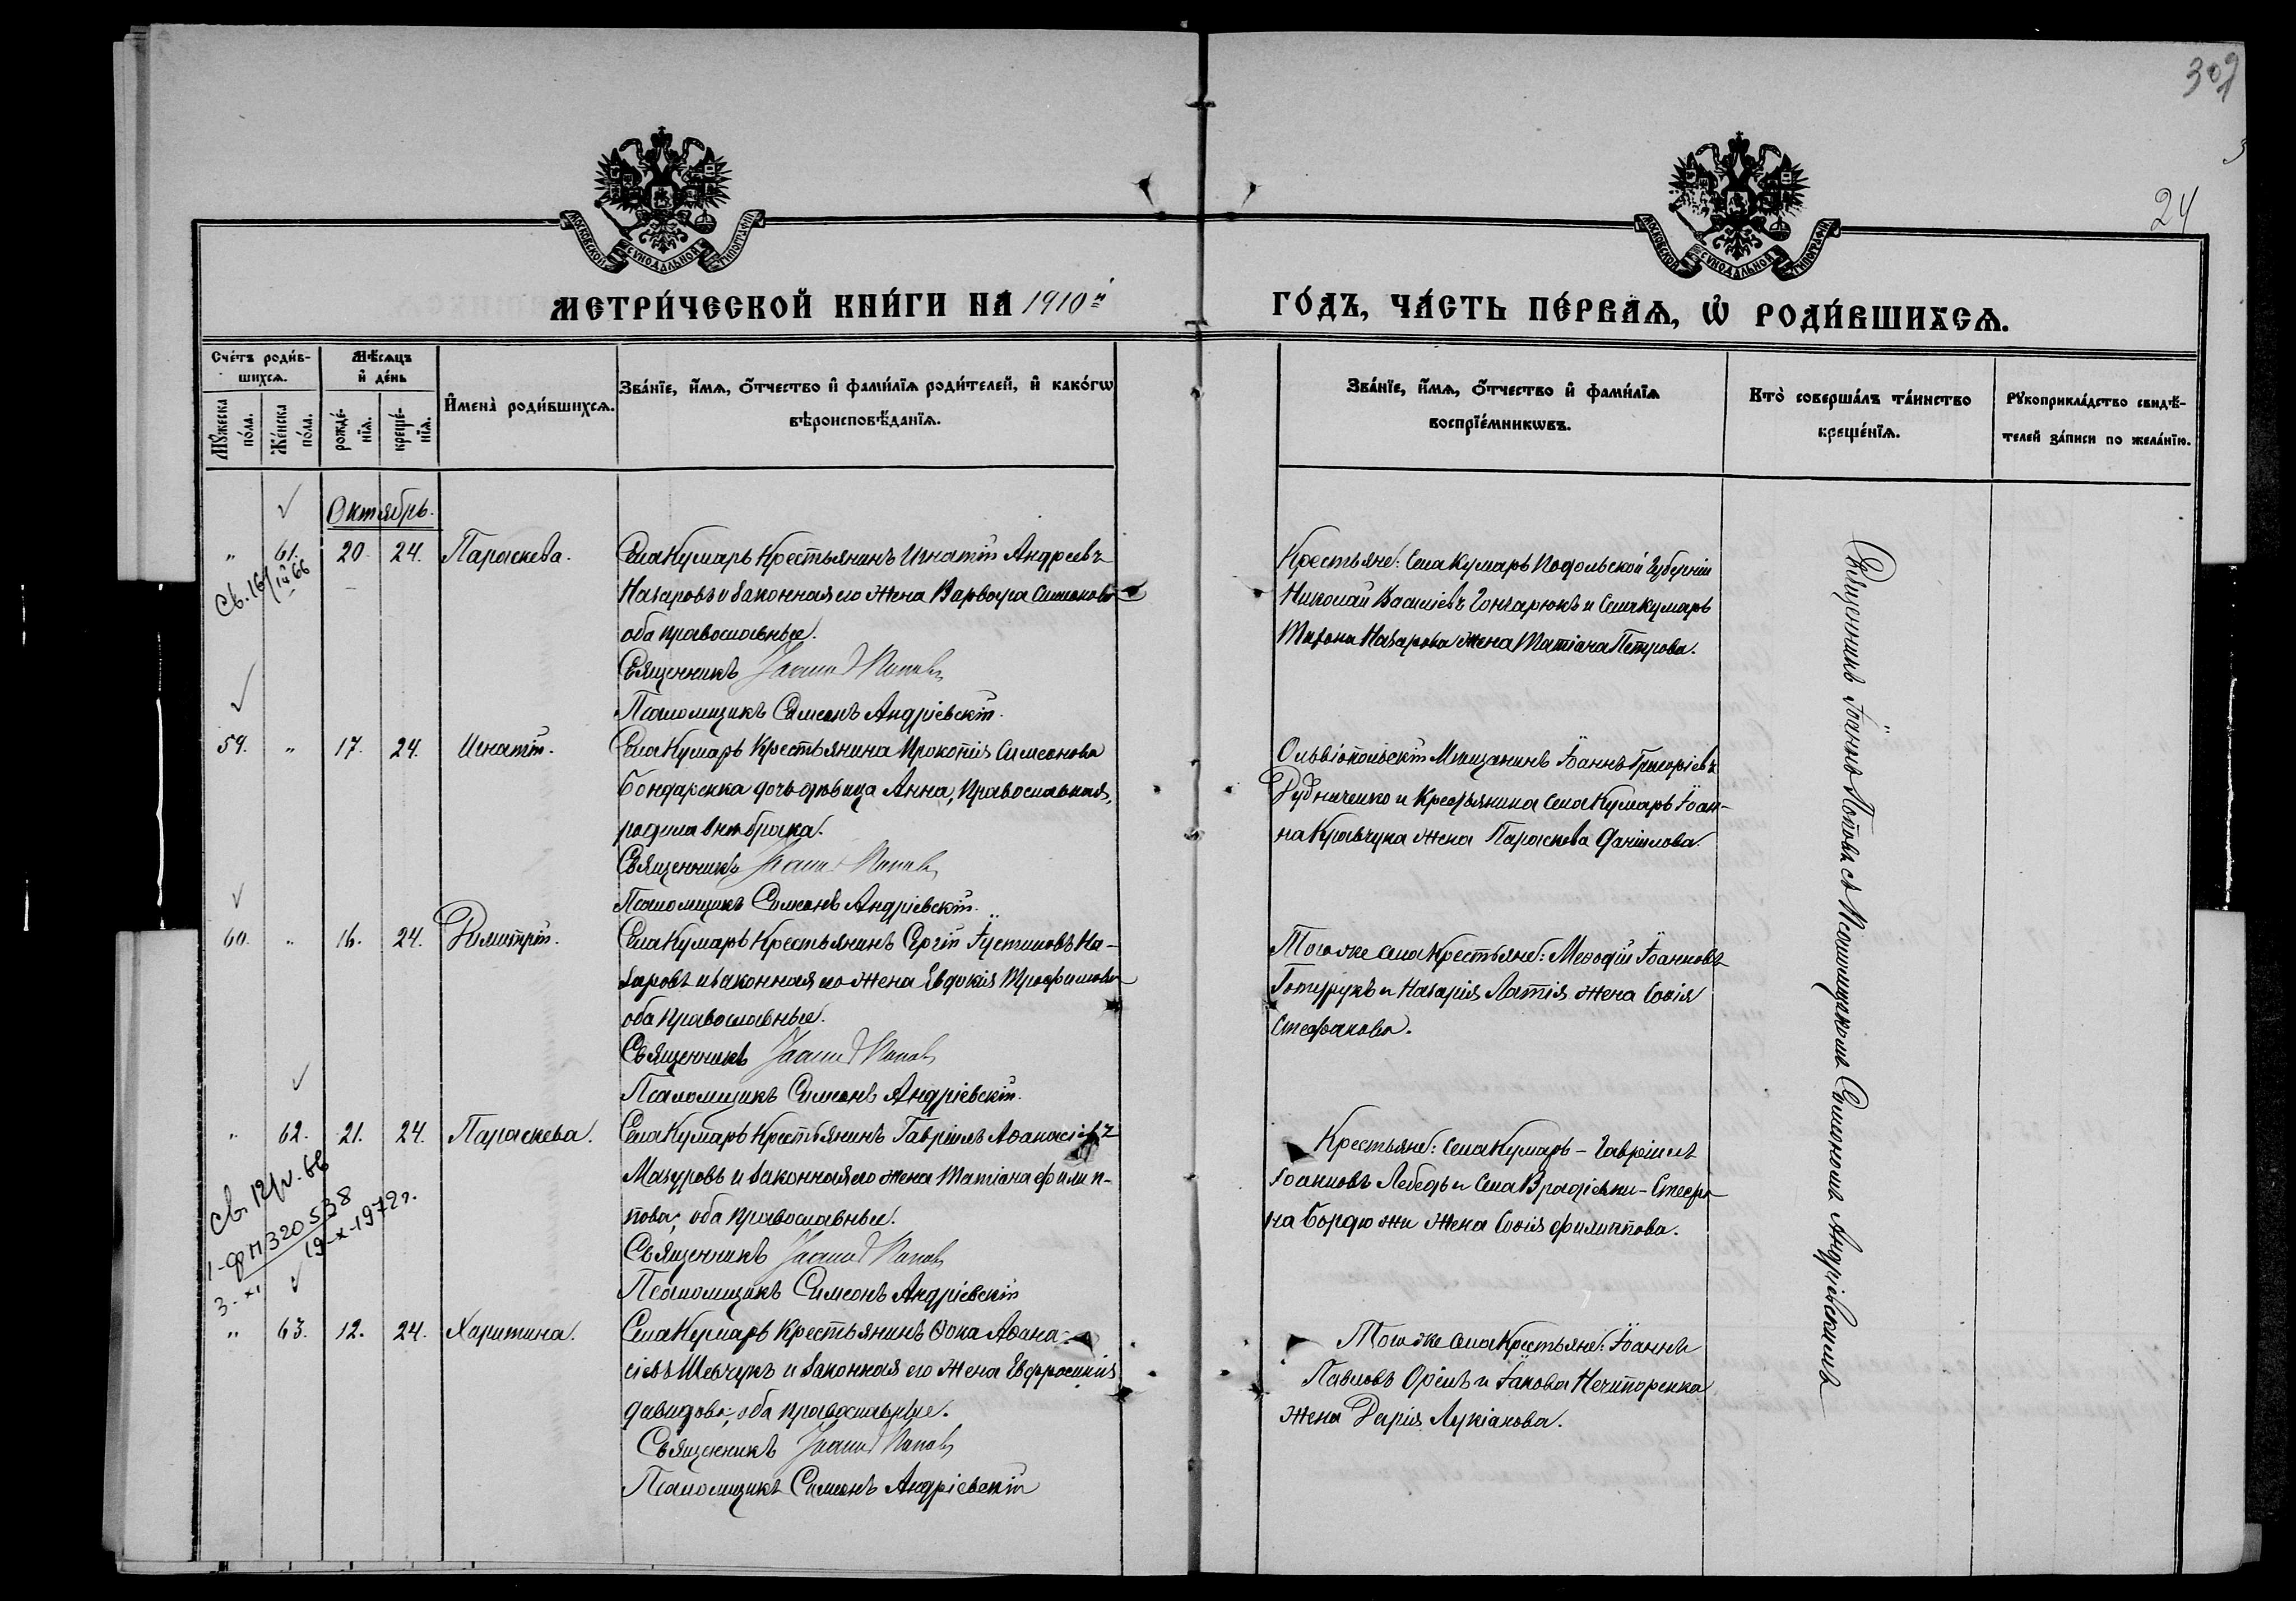 309
24
МОСКОВСКОЙ СѴНОДАЛЬНОЙ ТИПОГРАФІИ
МОСКОВСКОЙ СѴНОДАЛЬНОЙ ТИПОГРАФІИ
МЕТРИ́ЧЕСКОЙ КНИ́ГИ НА 1910й
ГО́ДЪ, ЧА́СТЬ ПЕ́РВАѦ, Ѡ҆ РОДИ́ВШИХСѦ.
Сче́тъ роди́в-
шихсѧ.
Мѣ́сѧцъ
и҆ де́нь
Мꙋ́жеска
по́ла.
Же́нска
по́ла.
рожде́-
нїѧ.
креще́-
нїѧ.
И҆мена̀ роди́вшихсѧ.
Зва́нїе, и҆́мѧ, ѻ҆́тчество и҆ фами́лїѧ роди́телей, и҆ како́гѡ
вѣроисповѣ́данїѧ.
Зва́нїе, и҆́мѧ, ѻ҆́тчество и҆ фами́лїѧ
воспрїе́мникѡвъ.
Кто̀ соверша́лъ та́инство
креще́нїѧ.
Рꙋкоприкла́дство свидѣ́-
телей за́писи по жела́нїю.
Октябрь.
" 61. 20. 24. Параскева.
Села Кумарь Крестьянинъ Игнатій Андреевъ
Назаровъ и законная его жена Варвара Симеонова
оба православные.
Священникъ Іоаннъ Поповъ
Псаломщикъ Симеонъ Андріевскій.
Крестьяне: Села Кумарь Подольской губерніи
Николай Василіевъ Гончарюкъ и Села Кумарь
Назарова жена Татіана Петрова.
59. " 17. 24. Игнатій.
Села Кумарь Крестьянина Прокопія Симеонова
Бондаренка дочь девица Анна, Православная,
родила внѣ брака.
Священникъ Іоаннъ Поповъ
Псаломщикъ Симеонъ Андріевскій.
Ольвіопольскій Мѣщанинъ Іоаннъ Григоріевъ
Рудниченко и Крестьянина Села Кумарь Іоан-
на Кравчука жена Параскева Даніилова.
60. " 16. 24. Димитрій.
Села Кумарь Крестьянинъ Сергій Іустиновъ На-
заровъ и законная его жена Евдокія Трофимова
оба православные.
Священникъ Іоаннъ Поповъ
Псаломщикъ Симеонъ Андріевскій.
Того же села Крестьяне: Меѳодій Іоанновъ
и Назарія Латія жена Софія
Стефанова.
" 62. 21. 24. Параскева.
Села Кумарь Крестьянинъ Гавріилъ Аѳанасіевъ
Мазуровъ и законная его жена Татіана Филип-
пова; оба православные.
Священникъ Іоаннъ Поповъ
Псаломщикъ Симеонъ Андріевскій
Крестьяне: Села Кумарь – Гавріилъ
Іоанновъ Лебедь и Села Врадіевки – Стефа-
на Бордюжи жена Софія Филиппова.
" 63. 12. 24. Харитина.
Села Кумарь Крестьянинъ Ѳока Аѳана-
сіевъ Шевчукъ и законная его жена Евфросинія
Давидова; оба православные.
Священникъ Іоаннъ Поповъ
Псаломщикъ Симеонъ Андріевскій
Того же Села Крестьяне: Іоаннъ
Павловъ Орелъ и Іакова Нечипоренка
жена Дарія Лукіанова.
Священникъ Іоаннъ Поповъ съ Псаломщикомъ Симеономъ Андріевскимъ
19-X-1972 г.